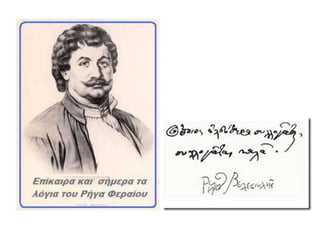 Επίκαιρα και σήμερα τα
λόγια του Ρήγα Φεραίου
Όποιος ελεύθερα συλλογάται,
συλλογάται καλά.
Ρήγας Βελεστινλής